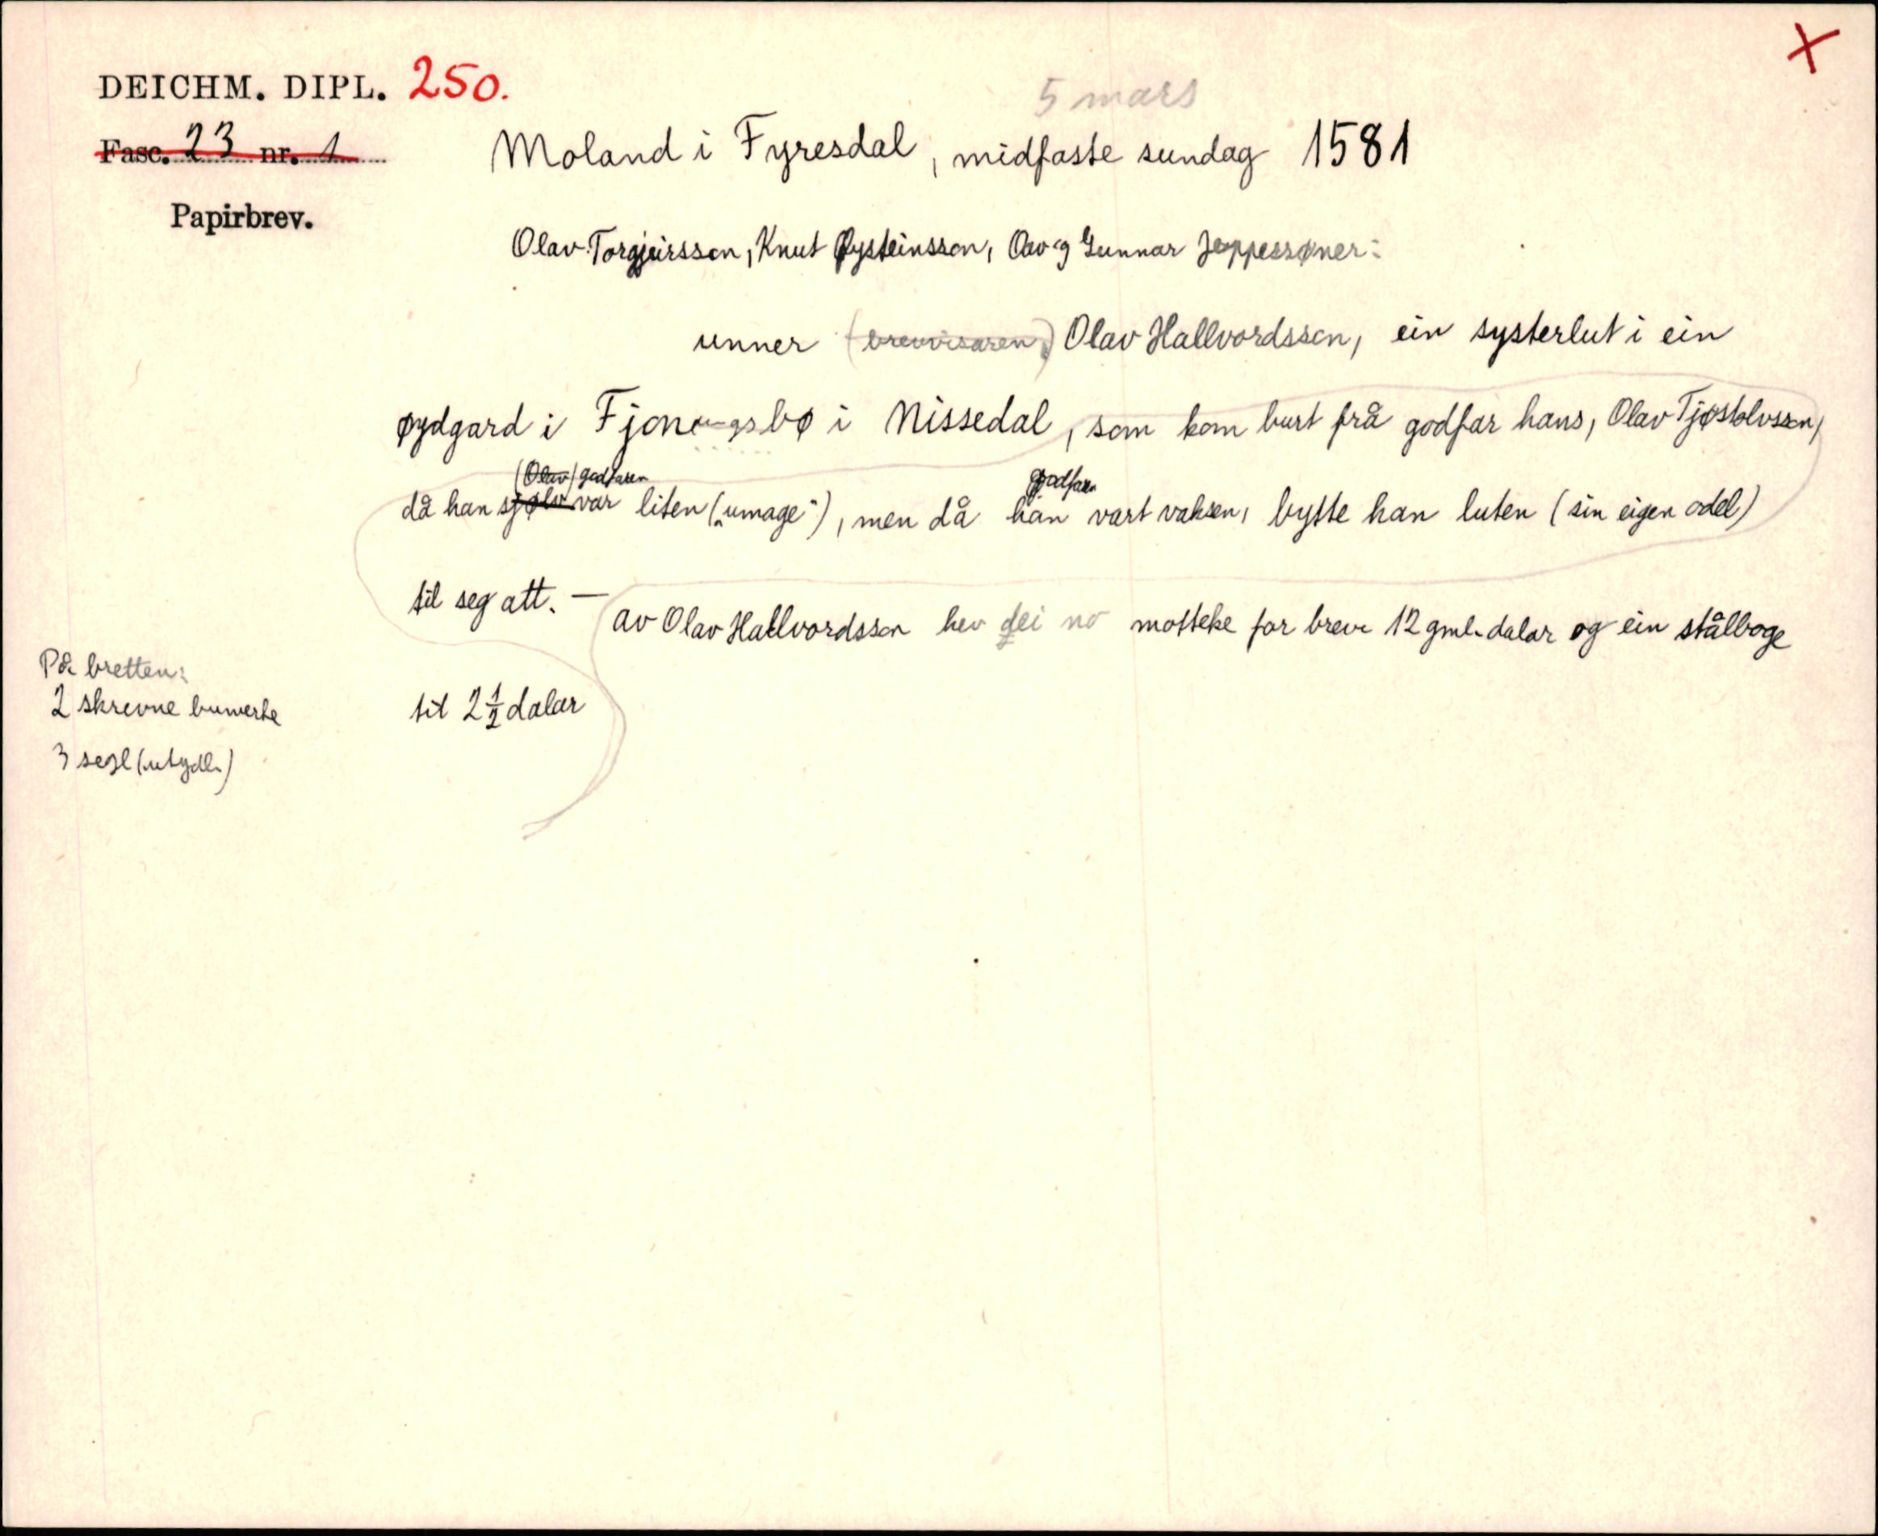 DEICHM. DIPL. 250.
X
5 mars
Fasc. 23 nr. 1
Moland i Fyresdal, midfaste sundag 1581
Papirbrev.
Olav Torgjeirsson, Knut Øysteinsson, Oav og Gunnar Jeppessøner:
unner (brevvisaren) Olav Hallvordsson, ein systerlut i ein
øydgard i i Nissedal, som kom burt frå godfar hans, Olav Tjøstolvsson,
(Olav) godfaren godfaren
då han sjølv var liten („umage"), men då han vart vaksen, bytte han luten (sin eigen odel)
til seg att. —
av Olav Hallvordsson hev dei no motteke for breve 12 gml. dalar og ein stålboge
På bretten:
2 skrevne bumerke
til 2 1/2 dalar
3 segl (utydl.)